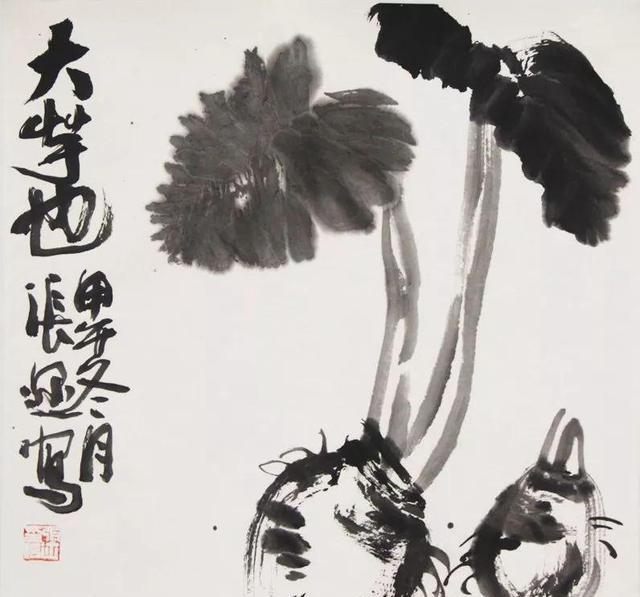 大芋也
甲午冬月
張寫